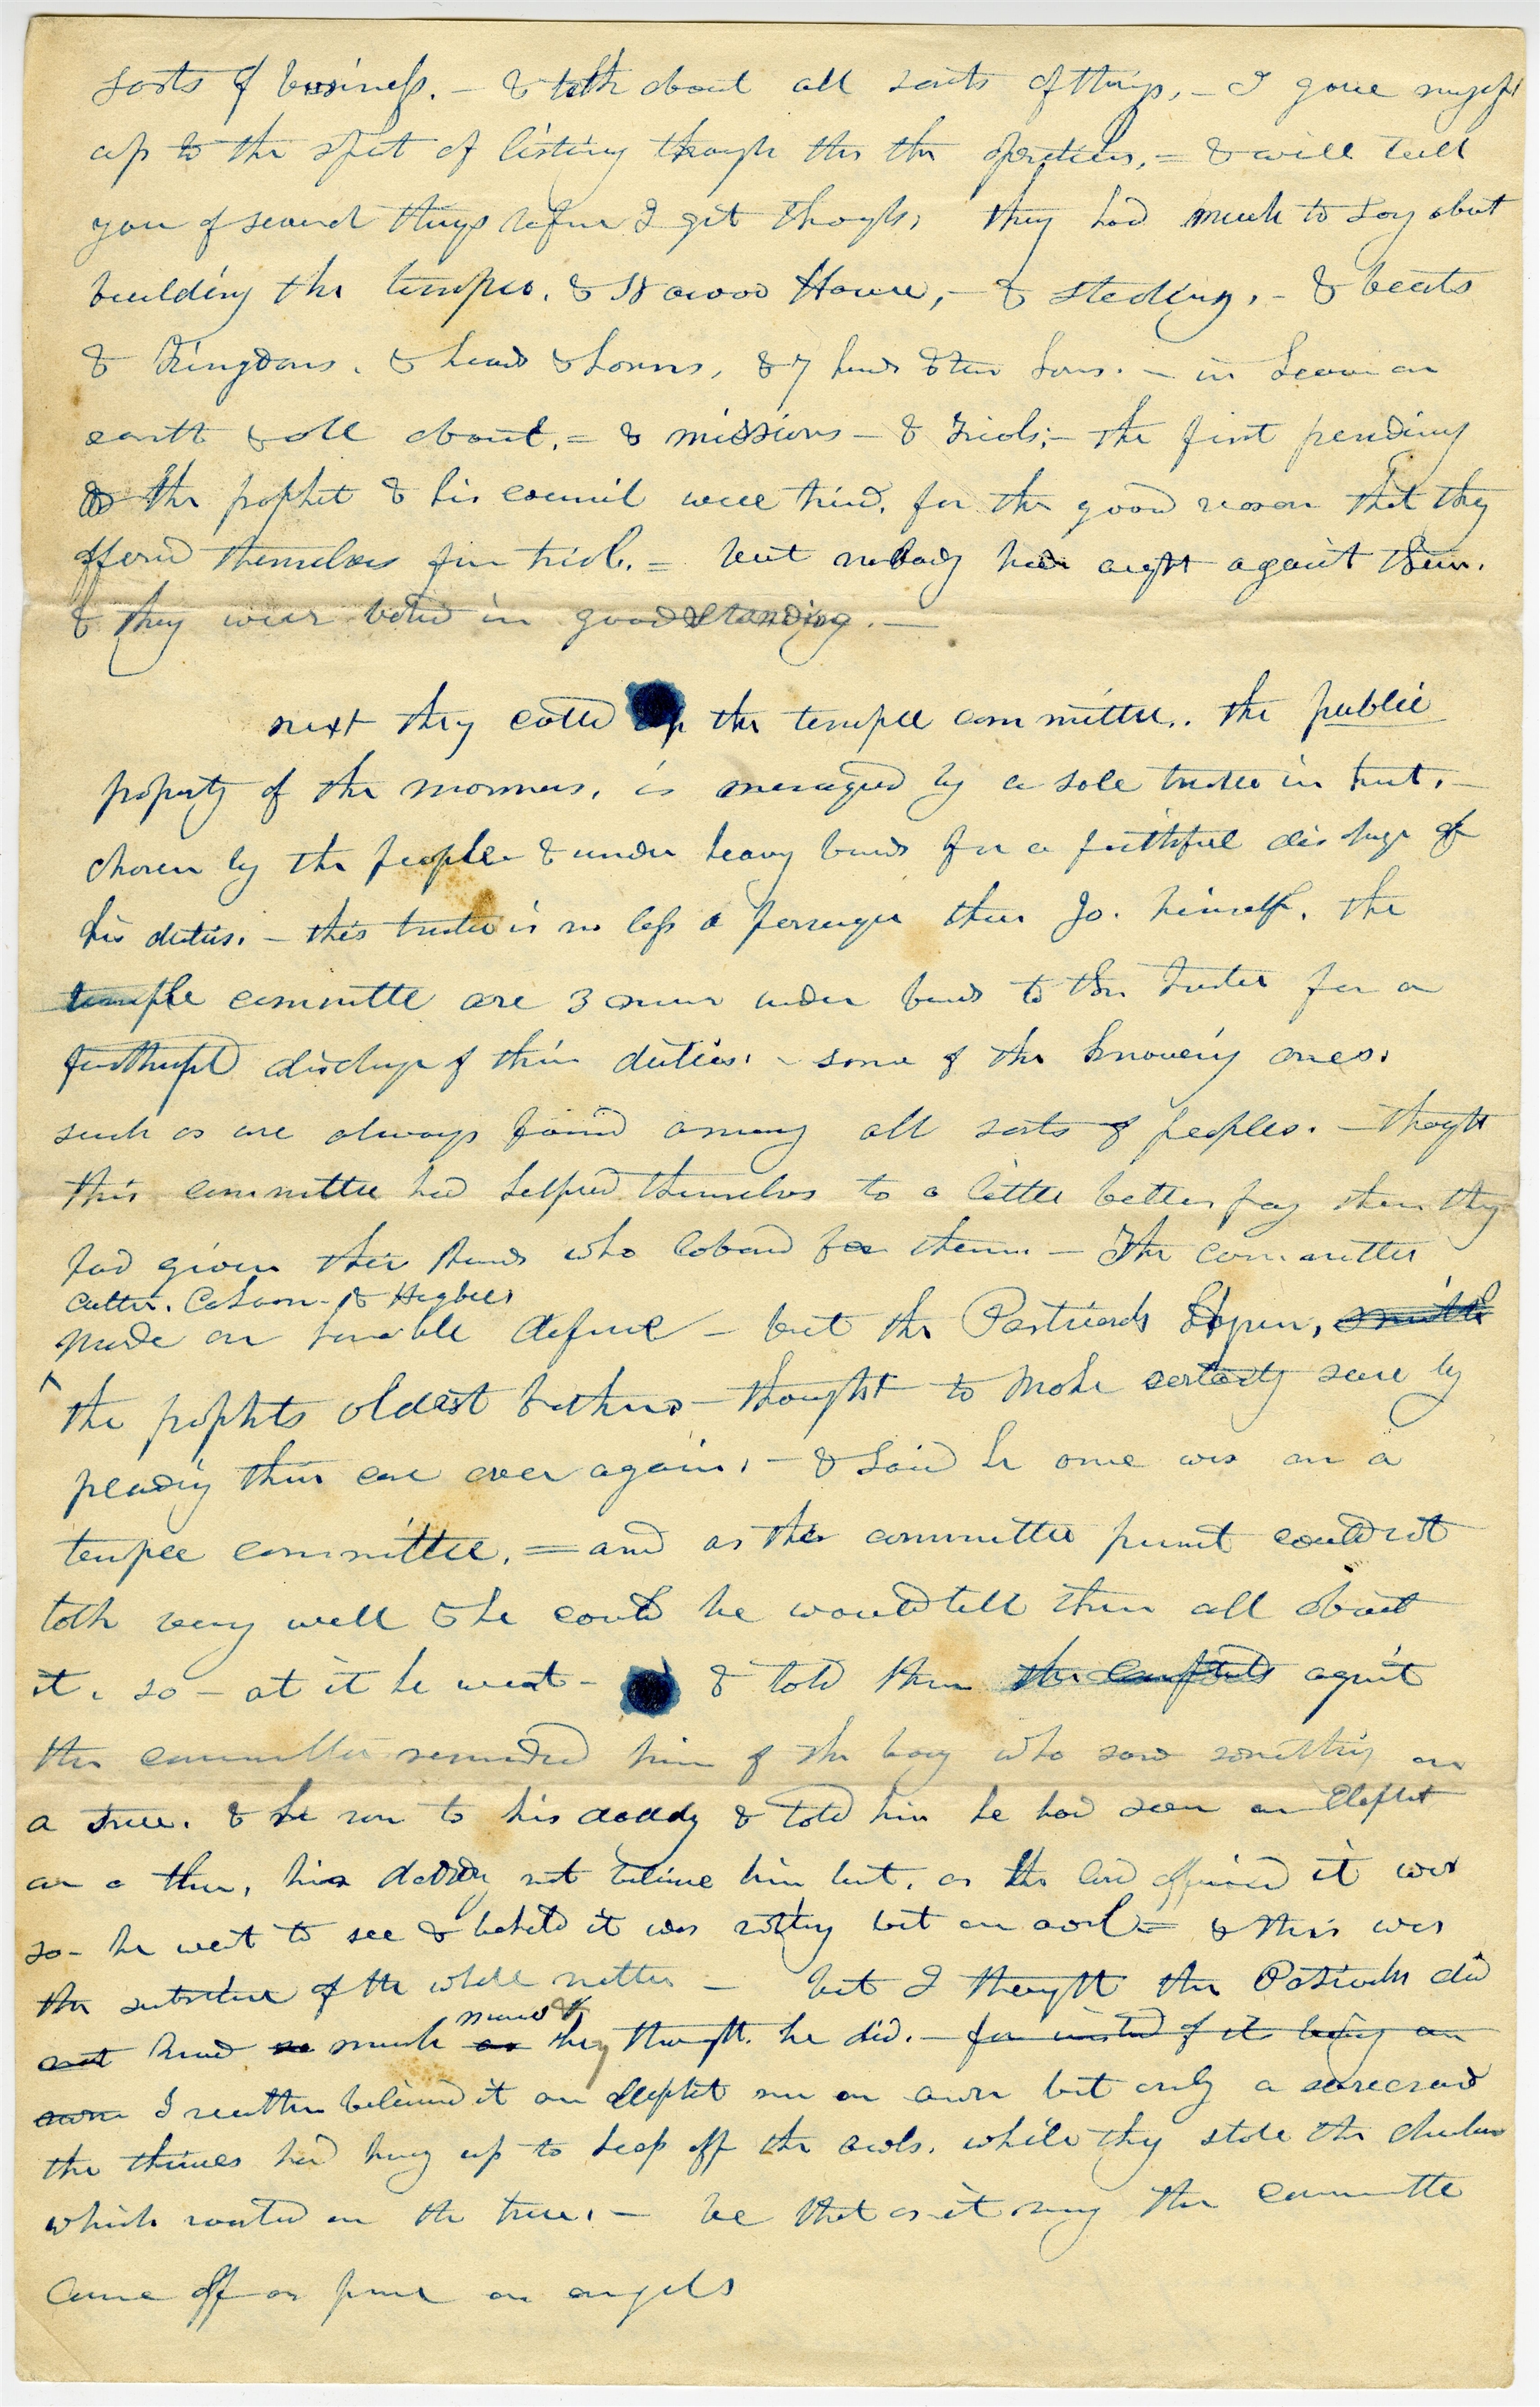 sorts of business. - & talk about all sorts of things, - I gave myself
up to the spirit of listing though the the operations, = & will tell
you of several things before I get though, they had much to say about
building the temple. & Nauvoo House, - & stealing, - & beasts
& Kingdoms. & heads & horns, & 7 heads & ten horns. - in heaven on
earth & all about. = & missions - & trials; - the first pending
the prophet & his council were tried, for the good reason that they
offered themselves for trial. = but nobody had aught against them.
& they were voted in good standing. -
next they called up the temple committee.. the public
property of the mormons, is managed by a sole trustee in trust, -
chosen by the people & under heavy bonds for a faithful discharge of
his duties. - this trustee is no less a personage than Jo. himself. the
temple committe are 3 men under bonds to the trustee for a
faithful discharge of their duties. - some of the knowing ones.
such as are always found among all sorts of peoples. - thought
this committee had helped themselves to a little better pay than they
had given their hands who labord for them - The committee
Cutler. Cahoon - & Higbee
made an humble defence - but the Patriarch Hyrum, smith
the prophets oldest brother - thought to make certainty sure by
pleading their case over again, - & said he once was on a
temple committee, = and as the committee present could not
talk very well & he could he would tell them all about
it. so - at it he went - & told them the complaints against
the committee reminded him of the boy who saw something on
a tree. & he ran to his daddy & told him he had seen an Elephant
on a tree, his daddy not believe him but, as the lad affirmed it was
so - he went to see & behold it was nothing but an owl = & this was
the substance of the whole matter - but I thought the Patriarch did
not so much as they thought he did. - for insted of its being an
owl I reather believed it an elephant nor an owl but only a scarecrow
the thieves had hung up to keep off the owls. while they stole the chickens
which roosted on the tree. - be that as it may the committe
Came off as pure as angels